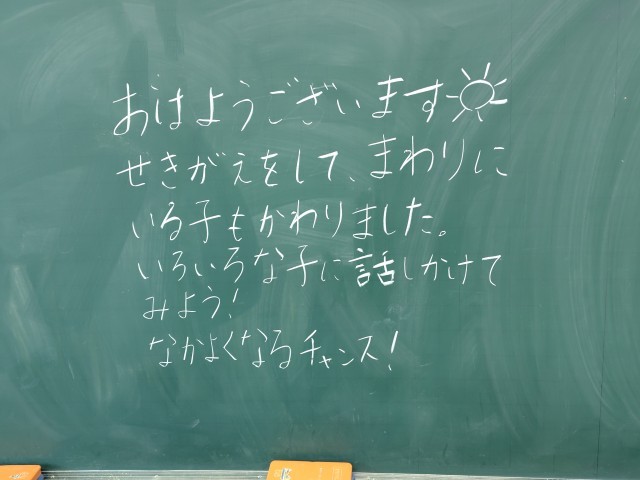 おはようございます
せきがえをして、まわりに
いる子もかわりました。
いろいろな子に話しかけて
みよう!
なかよくなるチャンス!